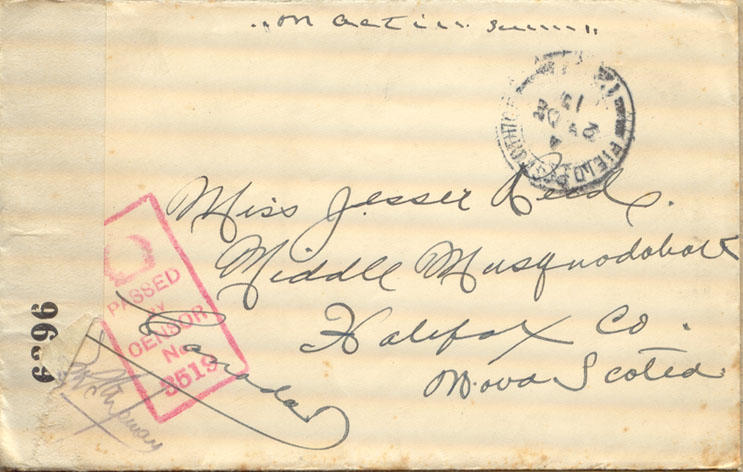 "On active service"
FIELD POST OFFICE
A
2 AP
15
Miss Jesser Reid.
Middle Musquodoboit
Halifax Co.
Nova Scotea
Canada
PASSED
BY
CENSOR
No
3519
9629